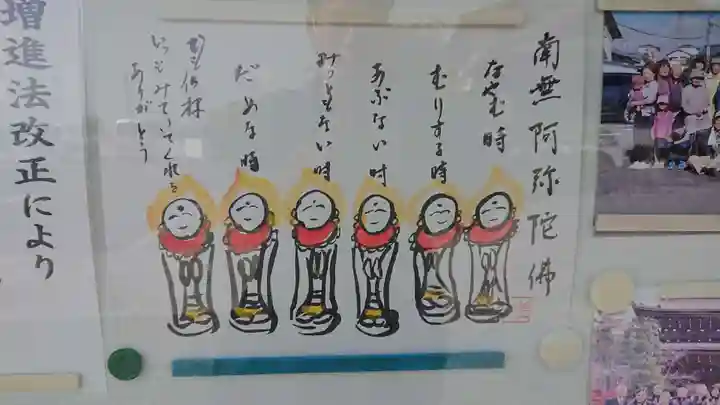 南無阿弥陀佛
なやむ時
むりする時
あぶない時
みっともない時
だめな時
むも仏様
いつもみていてくれる
ありがとう
増進法改正により